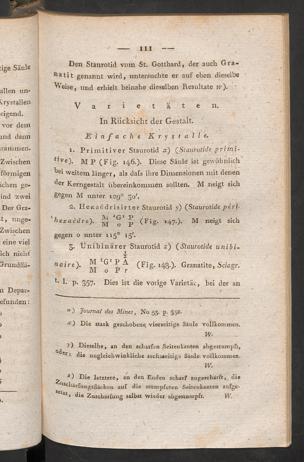 — 111 —
Den Staurotid vom St. Gotthard, der auch Gra-
natit genannt wird, untersuchte er auf eben dieselbe
Weise, und erhielt beinahe dieselben Resultate w).
Varietäten.
In Rücksicht der Gestalt.
Einfache Krystalle.
1. Primitiver Staurotid x) (Staurotide primi-
tive). M P (Fig. 146.). Diese Säule ist gewöhnlich
bei weitem länger, als daſs ihre Dimensionen mit denen
der Kerngestalt übereinkommen sollten. M neigt sich
gegen M unter 129° 30'.
2. Hexaëdrisirter Staurotid y) (Staurotide péri-
hexaèdre). M ¹G¹ P
M o P (Fig. 147.). M neigt sich
gegen o unter 115° 15'.
3. Unibinärer Staurotid z) (Staurotide unibi-
naire). M ¹G¹ P A
M o P r (Fig. 148.). Granatite, Sciagr.
t. I. p. 357. Dies ist die vorige Varietät, bei der an
w) Journal des Mines, No 53. p. 350.
x) Die stark geschobene vierseitige Säule vollkommen.
W.
y) Dieselbe, an den scharfen Seitenkanten abgestumpft,
oder: die ungleichwinkliche sechsseitige Säule vollkommen.
W.
z) Die letztere, an den Enden scharf zugeschärft, die
Zuschärfungsflächen auf die stumpfen Seitenkanten aufge-
setzt, die Zuschärfung selbst wieder abgestumpft. W.